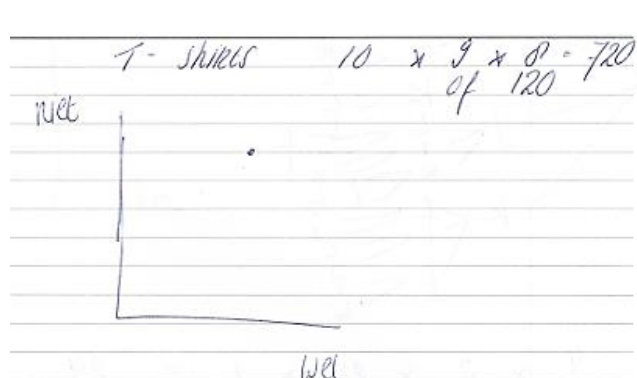 T- shirts 10 x 9 x 8 = 720
of 120
niet
wel